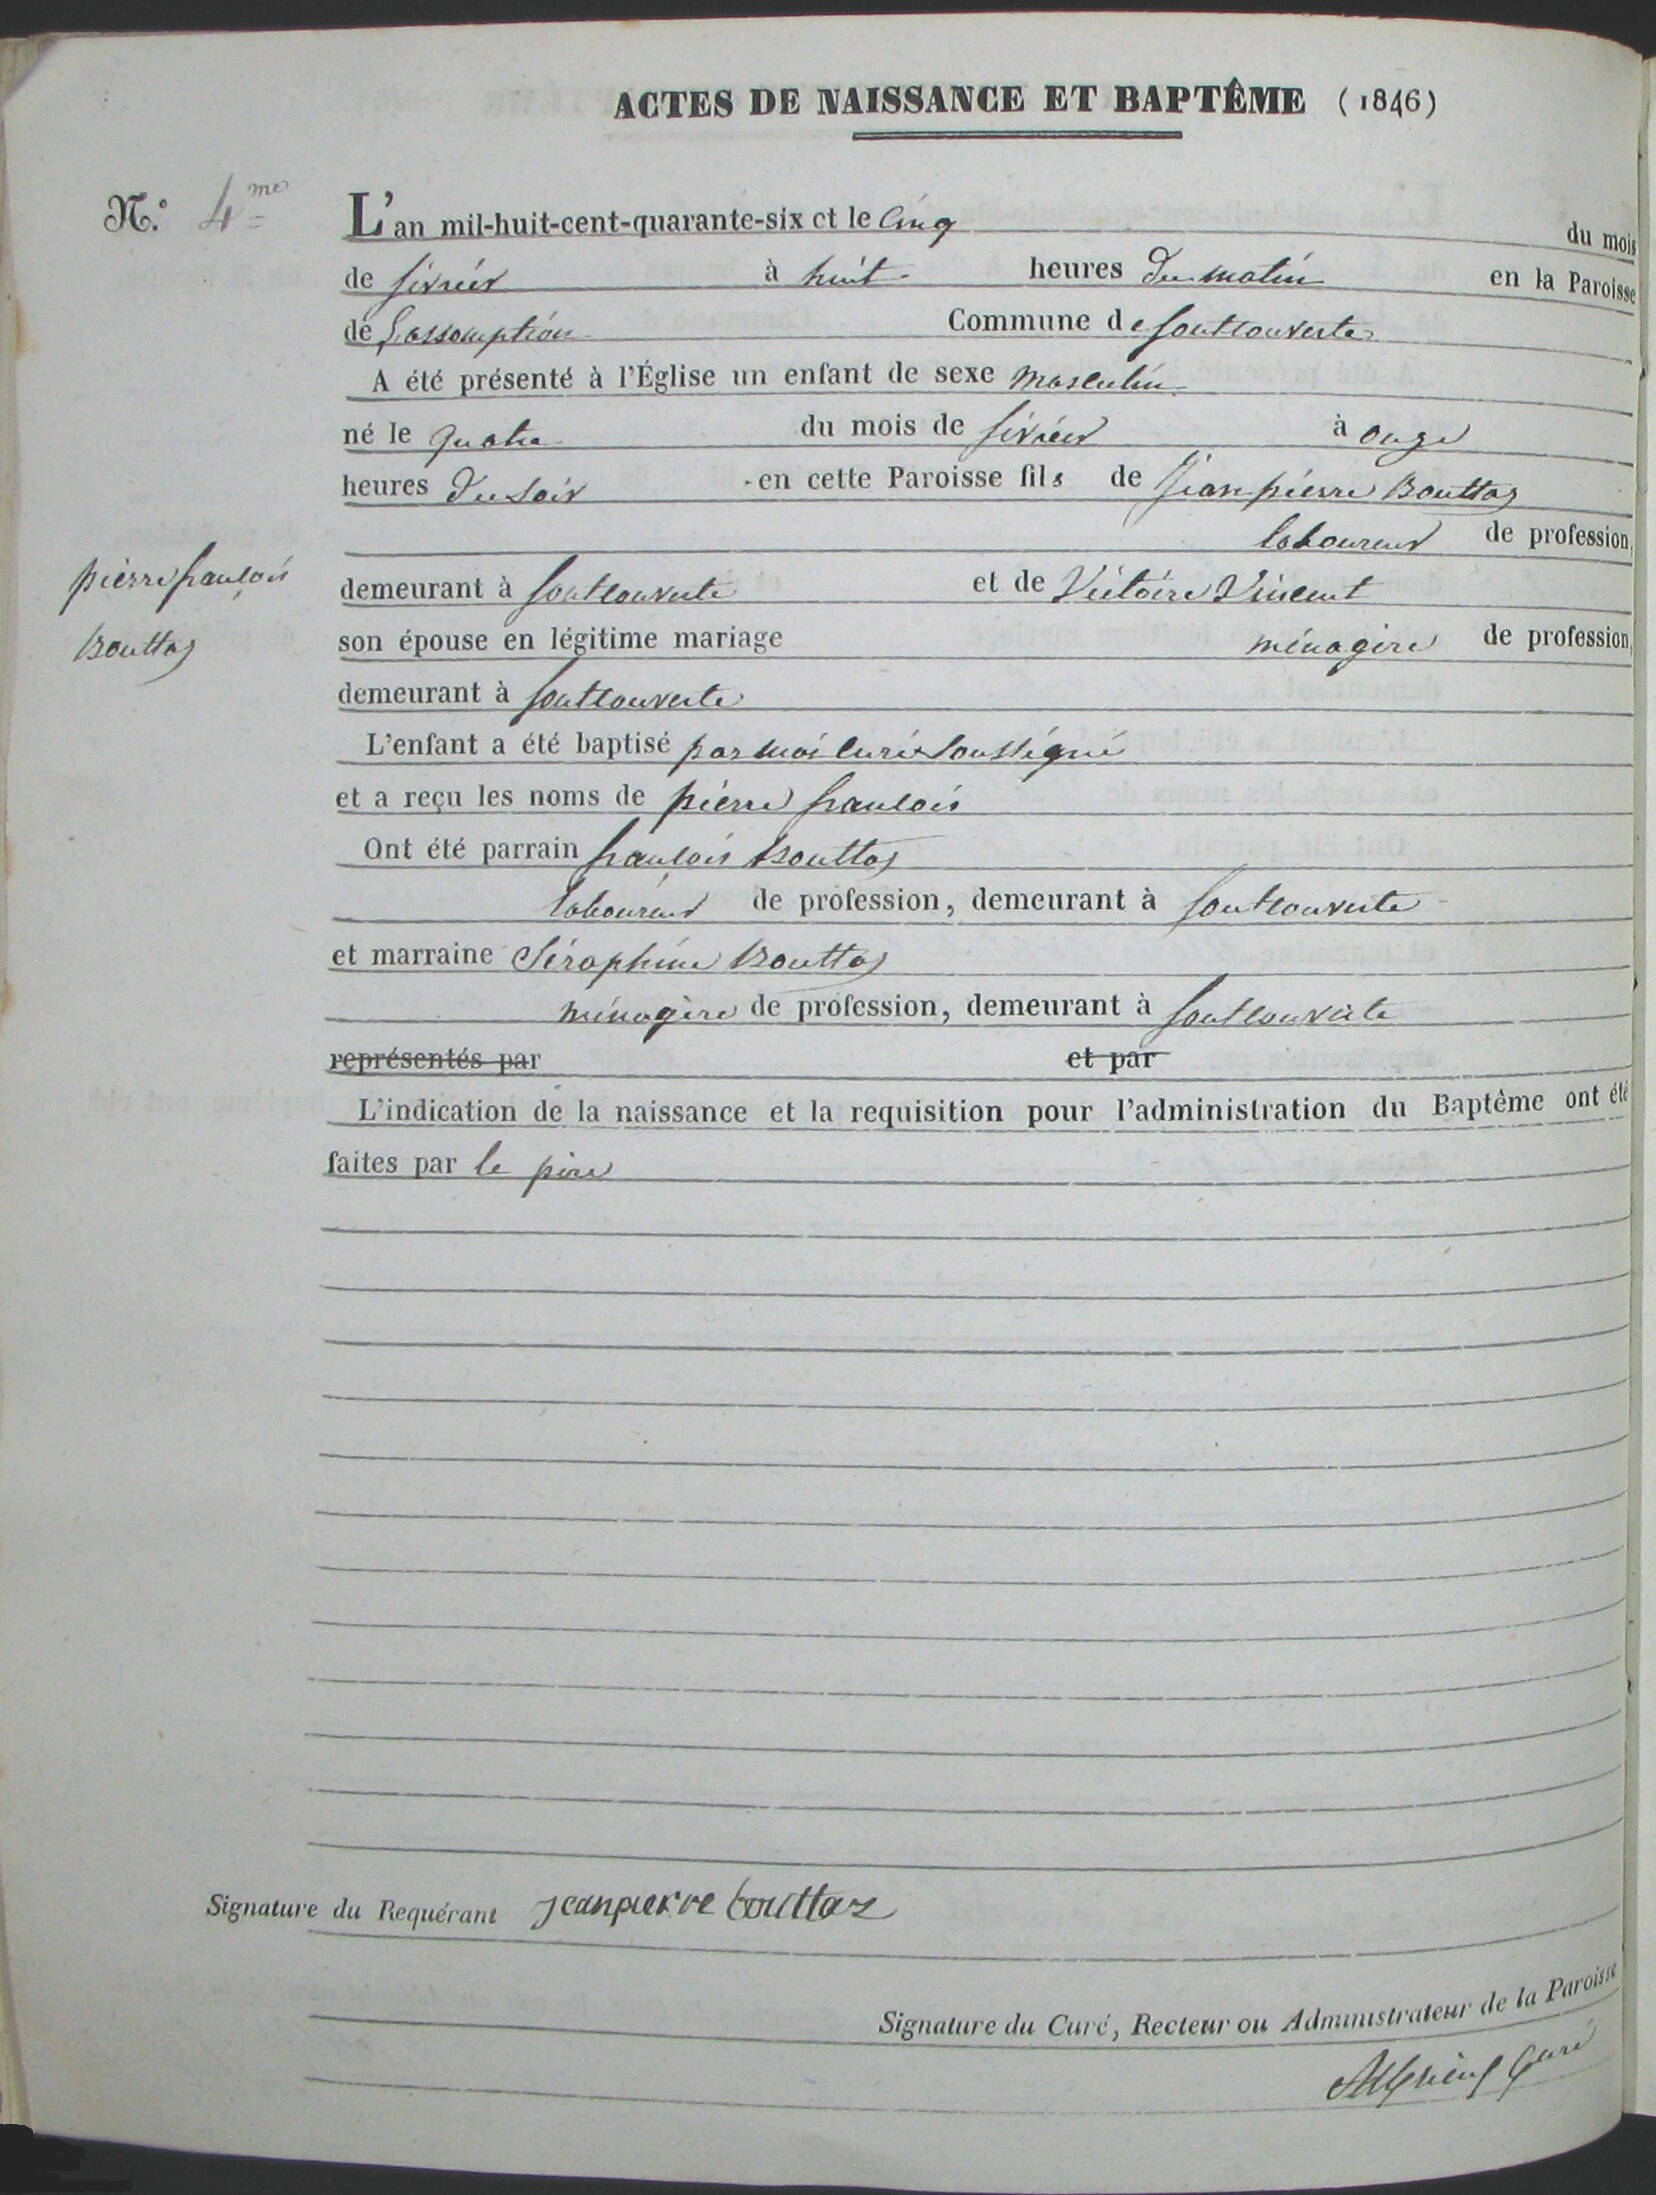 ACTES DE NAISSANCE ET BAPTÊME (1846)
N.º 4me
L'an mil-huit-cent-quarante-six et le cinq du mois
de février à huit heures du matin en la Paroisse
de L'assomption Commune de fontcouverte
A été présenté à l'Église un enfant de sexe masculin
né le quatre du mois de février à onze
heures du soir en cette Paroisse fils de Jean pierre Bouttaz
laboureur de profession,
pierre françois
demeurant à fontcouverte et de Victoire Vincent
Bouttaz
son épouse en légitime mariage ménagère de profession,
demeurant à fontcouverte
L'enfant a été baptisé par moi curé soussigné
et a reçu les noms de pierre françois
Ont été parrain françois Bouttaz
laboureur de profession, demeurant à fontcouverte
et marraine Séraphine Bouttaz
ménagère de profession, demeurant à fontcouverte
représentés par et par
L'indication de la naissance et la requisition pour l'administration du Baptême ont été
faites par le père
Signature du Requérant jean pierre bouttaz
Signature du Curé, Recteur ou Administrateur de la Paroisse
Curé